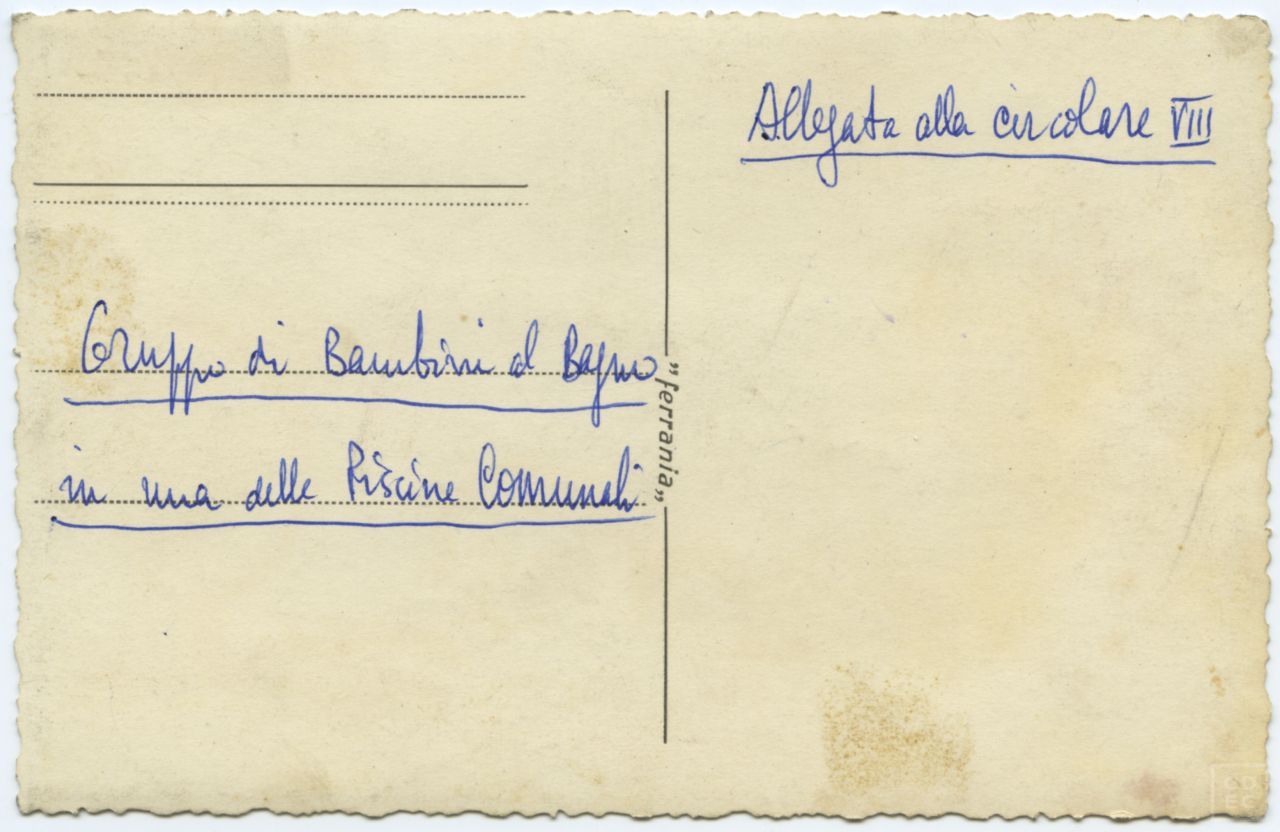 Allegata alla circolare VIII
Gruppo di Bambini al Bagno
in una delle Piscine Comunali
„ferrania„
CD
EC